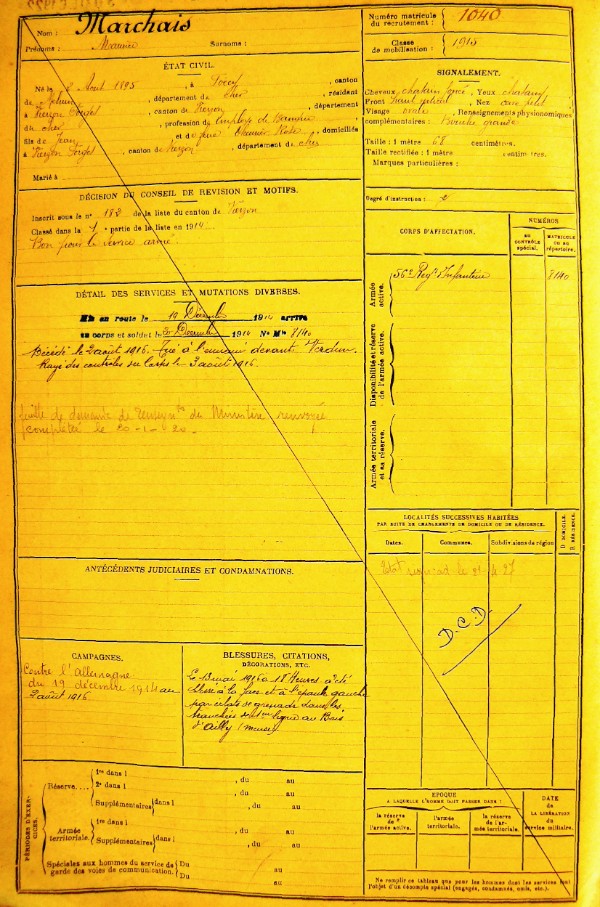 Nom : Marchais
Prénoms : Maurice Surnoms :
Numéro matricule du recrutement : 1040
Classe de mobilisation : 1915
ÉTAT CIVIL.
Né le 2 Août 1895, à , canton
de , département de Cher, résident
à Vierzon , canton de Vierzon, département
du Cher, profession de employé de Banque
fils de Jean et de , domiciliés
à Vierzon , canton de Vierzon, département de Cher
Marié à
SIGNALEMENT.
Cheveux châtain foncé Yeux
Front Nez
Visage ovale Renseignements physionomiques
complémentaires : Bouche grande
Taille : 1 mètre 68 centimètres.
Taille rectifiée : 1 mètre centimètres.
Marques particulières :
Degré d'instruction :
DÉCISION DU CONSEIL DE REVISION ET MOTIFS.
Inscrit sous le n° 182 de la liste du canton de Vierzon
Classé dans la 1e partie de la liste en 1914
Bon pour le service armé
CORPS D'AFFECTATION.
NUMÉROS
AU CONTRÔLE spécial.
MATRICULE OU AU répertoire.
Armée active.
56e Regt d'Infanterie
8140
Disponibilité et réserve de l'armée active.
Armée territoriale et sa réserve.
DÉTAIL DES SERVICES ET MUTATIONS DIVERSES.
Mis en route le 19 Décembre 1914 arrivé
au corps et soldat le Décembre 1914 N° Mle 8140
Décédé le 2 août 1916. Tué à l'ennemi devant Verdun.
Rayé des contrôles du Corps le 3 août 1916.
feuille de demande de renseignts du Ministère renvoyée
complétée le 20-1-20.
LOCALITÉS SUCCESSIVES HABITÉES
PAR SUITE DE CHANGEMENTS DE DOMICILE OU DE RÉSIDENCE.
Dates.
Communes.
Subdivisions de région
D DOMICILE.
R RÉSIDENCE.
D.C.D.
ANTÉCÉDENTS JUDICIAIRES ET CONDAMNATIONS.
CAMPAGNES.
Contre l'Allemagne
du 19 décembre 1914 au
2 août 1916
BLESSURES, CITATIONS,
DÉCORATIONS, ETC.
Le mai 1916 à 18 heures a été
blessé à la face et à l'épaule gauche
par éclats de grenade dans les
tranchées de 1ère ligne au Bois
d'Ailly (Meuse)
PÉRIODES D'EXERCICES.
Réserve....
1re dans l , du au
2e dans l , du au
Supplémentaires dans l , du au
Armée territoriale.
1re dans l , du au
Supplémentaires dans l , du au
Spéciales aux hommes du service de garde des voies de communication.
Du au
Du au
EPOQUE
A LAQUELLE L'HOMME DOIT PASSER DANS :
la réserve de l'armée active.
l'armée territoriale.
la réserve de l'armée territoriale.
DATE
de
LA LIBÉRATION
du
service militaire.
Ne remplir ce tableau que pour les hommes dont les services font
l'objet d'un décompte spécial (engagés, condamnés, omis, etc.).